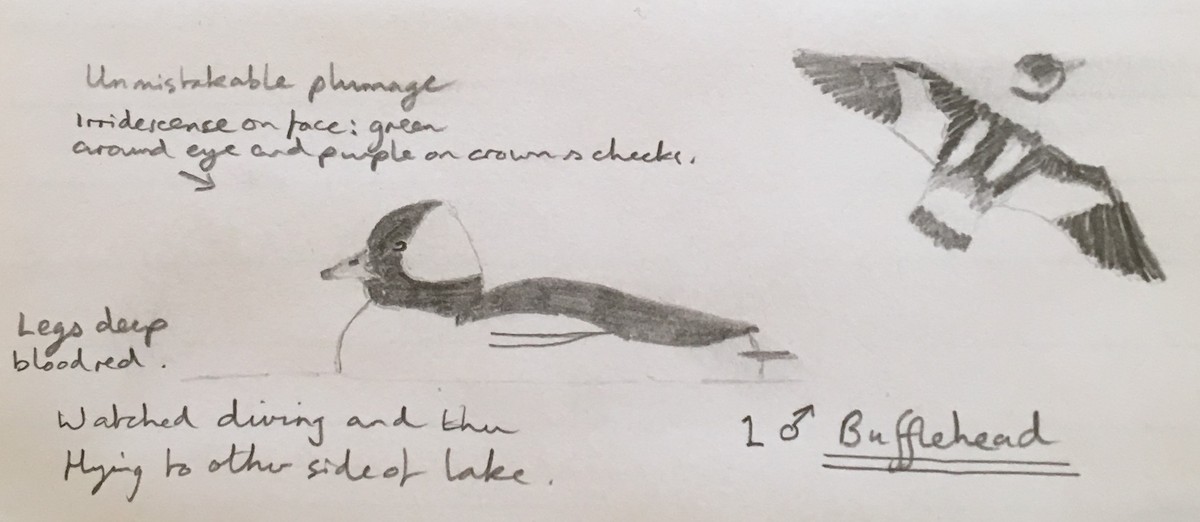 Unmistakeable plumage
Irridescense on face: green
around eye and purple on crown & cheeks.
Legs deep
bloodred.
Watched diving and then
flying to other side of lake.
1 ♂ Bufflehead